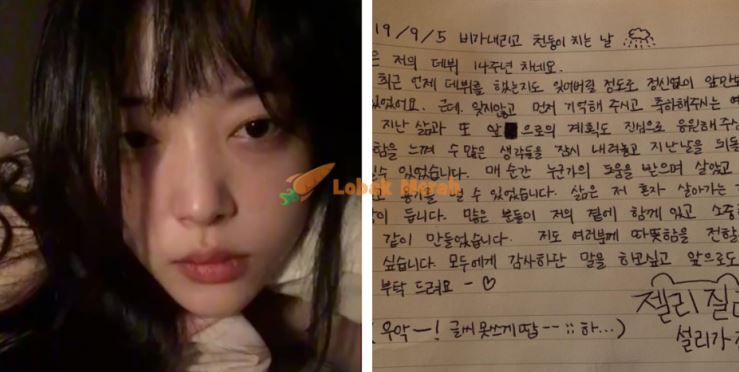 19/9/5 비가내리고 천둥이 치는 날
은 저의 데뷔 14주년 차네요.
최근 언제 데뷔를 했는지도 잊어버릴 정도로 정신없이 앞만보
있었어요. 군데, 잊지않고 먼저 기억해 주시고 축하해주시는 여
지난 삶과 또 앞으로의 계획도 진심으로 응원해 주심
함을 느껴 수많은 생각들을 잠시 내려놓고 지난날을 되돌
있었습니다. 매 순간 누군가의 도움을 받으며 살았고
용기를 낼 수 있었습니다. 삶은 저 혼자 살아가는
이 듭니다. 많은 분들이 저의 곁에 함께 있고 소중
같이 만들었습니다. 저도 여러분께 따뜻함을 전할
싶습니다. 모두에게 감사하단 말을 하고싶고 앞으로도
부탁 드려요 - ♡
젤리
(우악ー! 글씨 못쓰게땀 -- ;; 하...)
설리가
Lobak Merah